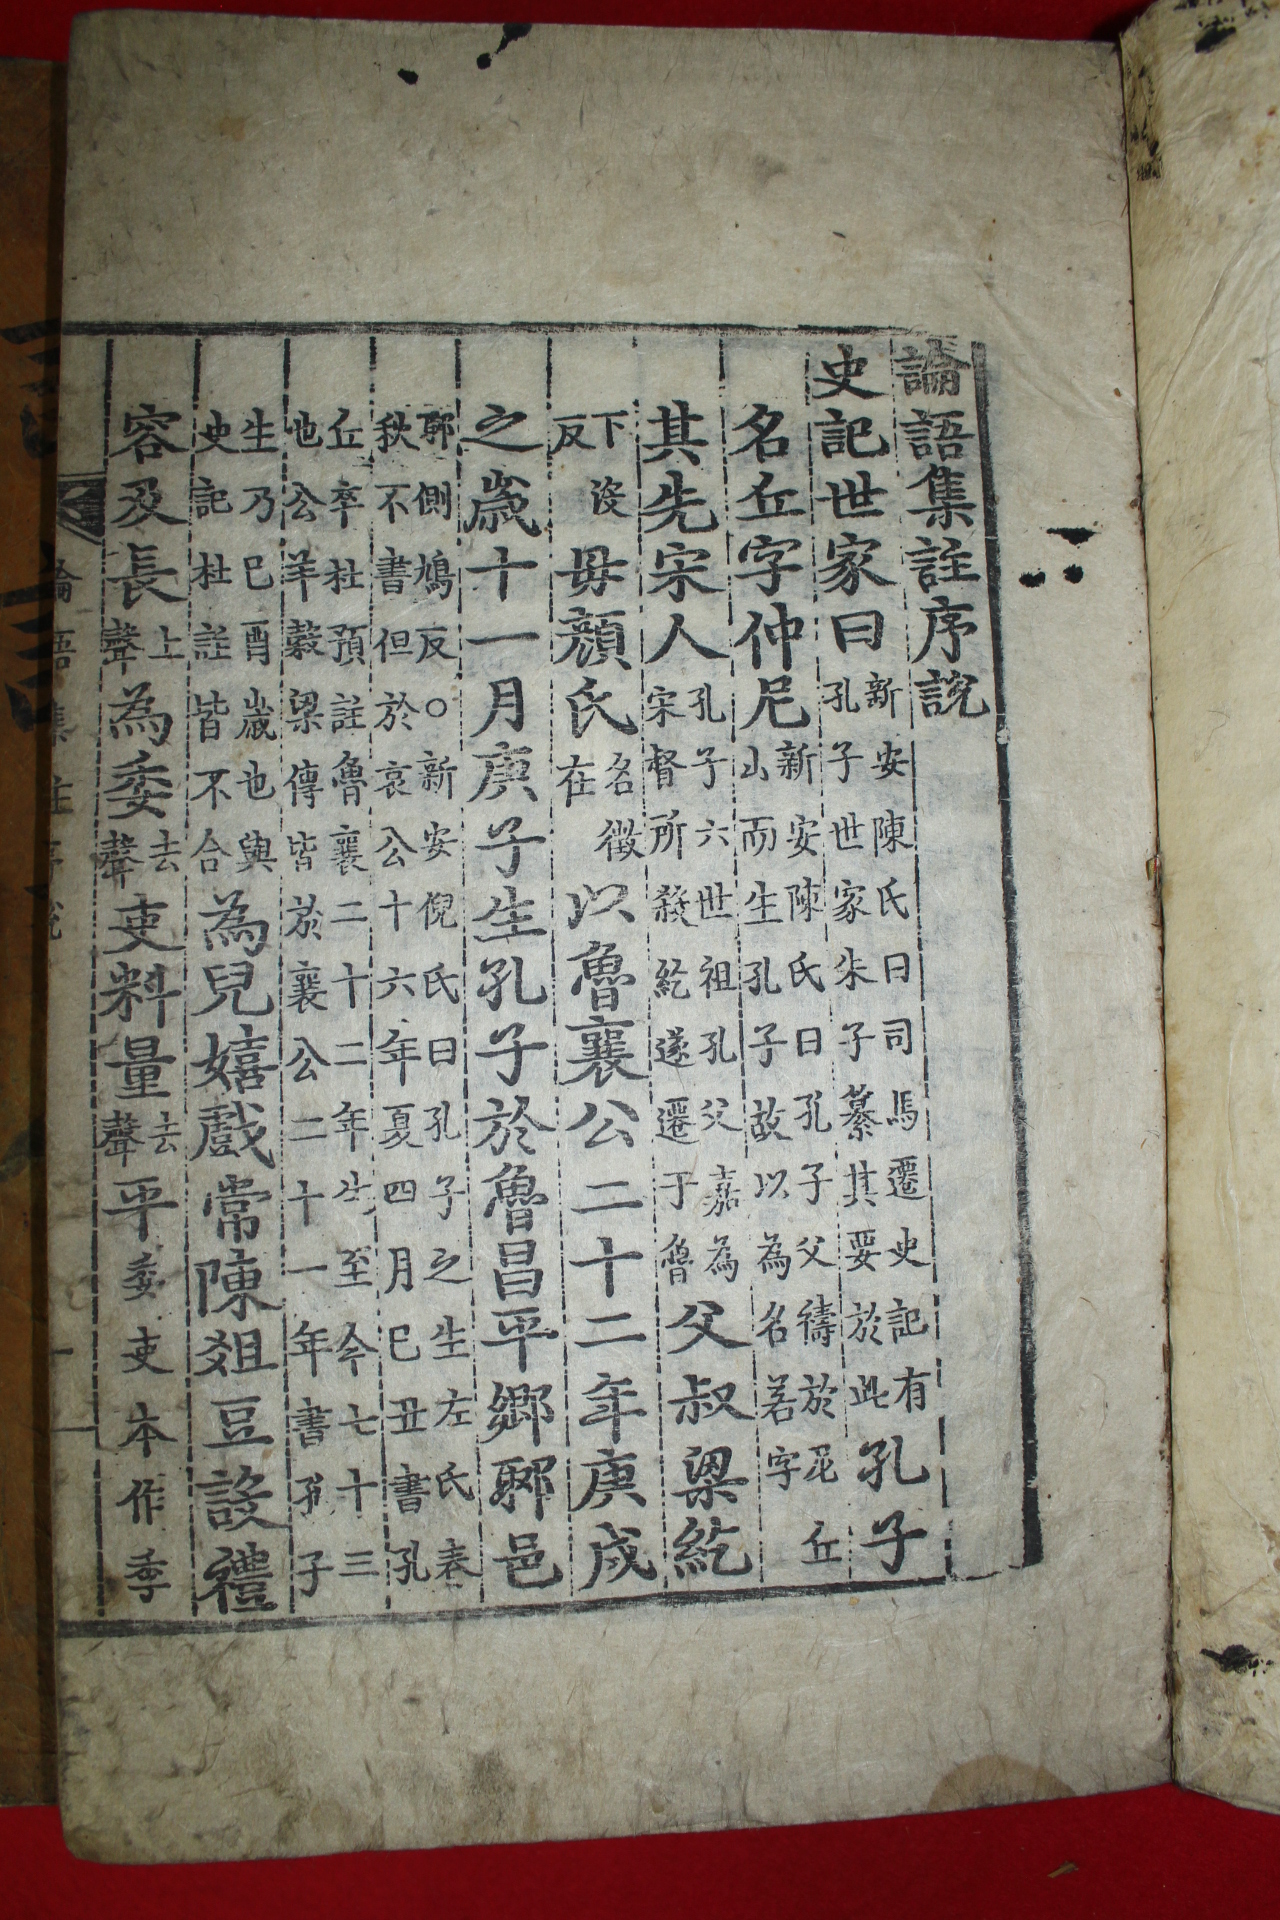 論語集註序說
史記世家曰新安陳氏曰司馬遷史記有孔子世家朱子纂其要於此孔子
名丘字仲尼新安陳氏曰孔子父禱於尼丘山而生孔子故以為名若字
其先宋人孔子六世祖孔父嘉為宋督所殺紇遂遷于魯父叔梁紇
下沒反毋顔氏名徵在以魯襄公二十二年庚戌
之歲十一月庚子生孔子於魯昌平鄉郰邑
郰側鳩反○新安倪氏曰孔子之生左氏春秋不書但於哀公十六年夏四月己丑書孔
丘卒杜預註魯襄二十二年生至今七十三也公羊穀梁傳皆於襄公二十一年書孔子
生乃己酉歲也與史記杜註皆不合為兒嬉戲常陳俎豆設禮
容及長上聲為委去聲吏料量去聲平委吏本作季
論語集註序說 一